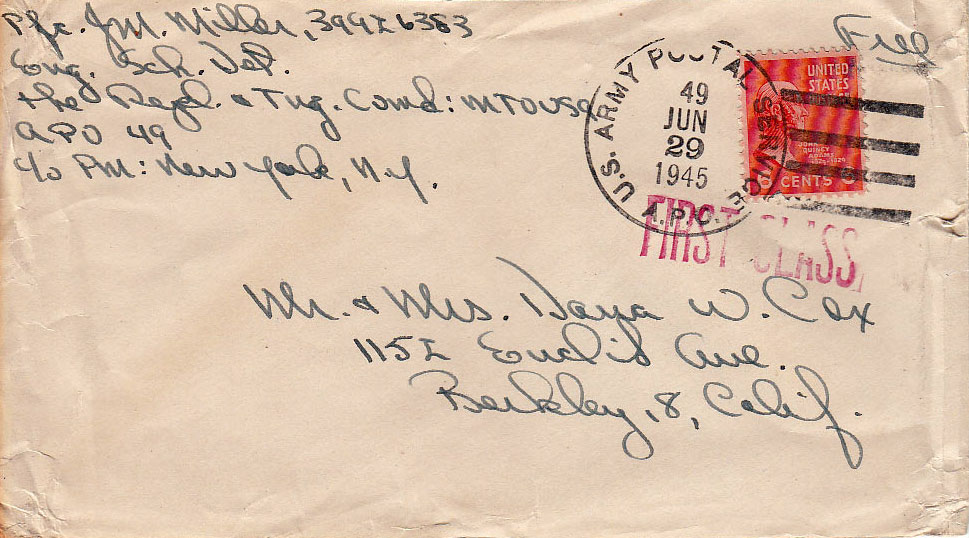 Pfc. J.M. Miller, 399216383
Free
Eng. Sch. Det.
the Repl. & Tng. Comd: MTOUSA
APO 49
c/o PM: New York, N.Y.
U.S. ARMY POSTAL SERVICE
A.P.O.
49
JUN
29
1945
UNITED
STATES
JOHN
QUINCY
ADAMS
1825-1829
6 CENTS 6
FIRST CLASS
Mr. & Mrs. Dana W. Cox
1152 Euclid Ave.
Berkley, 8, Calif.